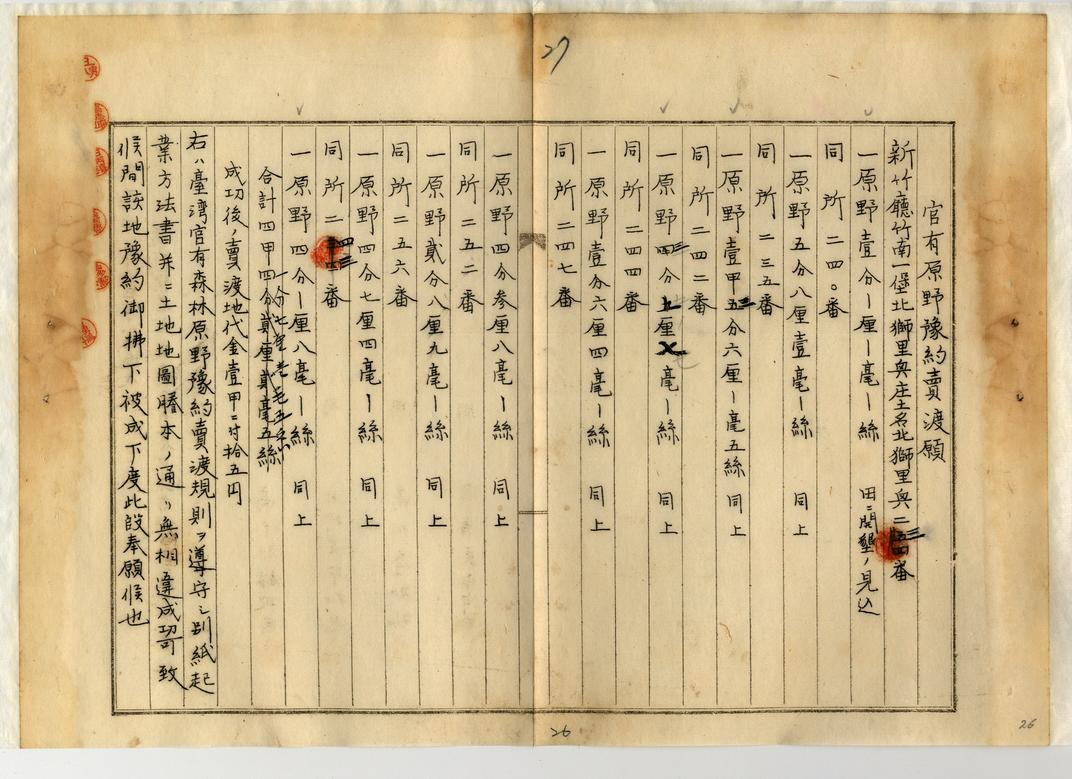 27
官有原野豫約賣渡願
新竹廳竹南一堡北獅里興庄土名北獅里興二三番
一原野壹分ー厘ー毫ー絲 田ニ開墾ノ見込
同所二四〇番
一原野五分八厘壹毫ー絲 同上
同所二三五番
一原野壹甲三分六厘ー毫五絲 同上
同所二四二番
一原野三分七厘ー毫ー絲 同上
同所二四四番
一原野壹分六厘四毫ー絲 同上
同所二四七番
一原野四分参厘八毫ー絲 同上
同所二五二番
一原野貳分八厘九毫ー絲 同上
同所二五六番
一原野四分七厘四毫ー絲 同上
同所二四三番
一原野四分ー厘八毫ー絲 同上
合計四甲四分貳厘貳毫五絲
成功後ノ賣渡地代金壹甲ニ付拾五円
右ハ臺湾官有森林原野豫約賣渡規則ヲ遵守シ別紙起
業方法書并ニ土地地圖謄本ノ通リ無相違成功可致
候間該地豫約御拂下被成下度此段奉願候也
26
26